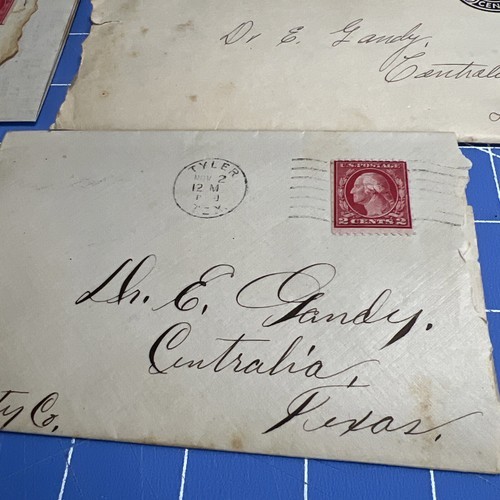 CEN
Dr. E. Gandy,
TYLER
NOV 2
12 M
TEX.
U.S. POSTAGE
2 CENTS 2
Dr. E. Gandy.
Centralia,
Texas.
ty Co.